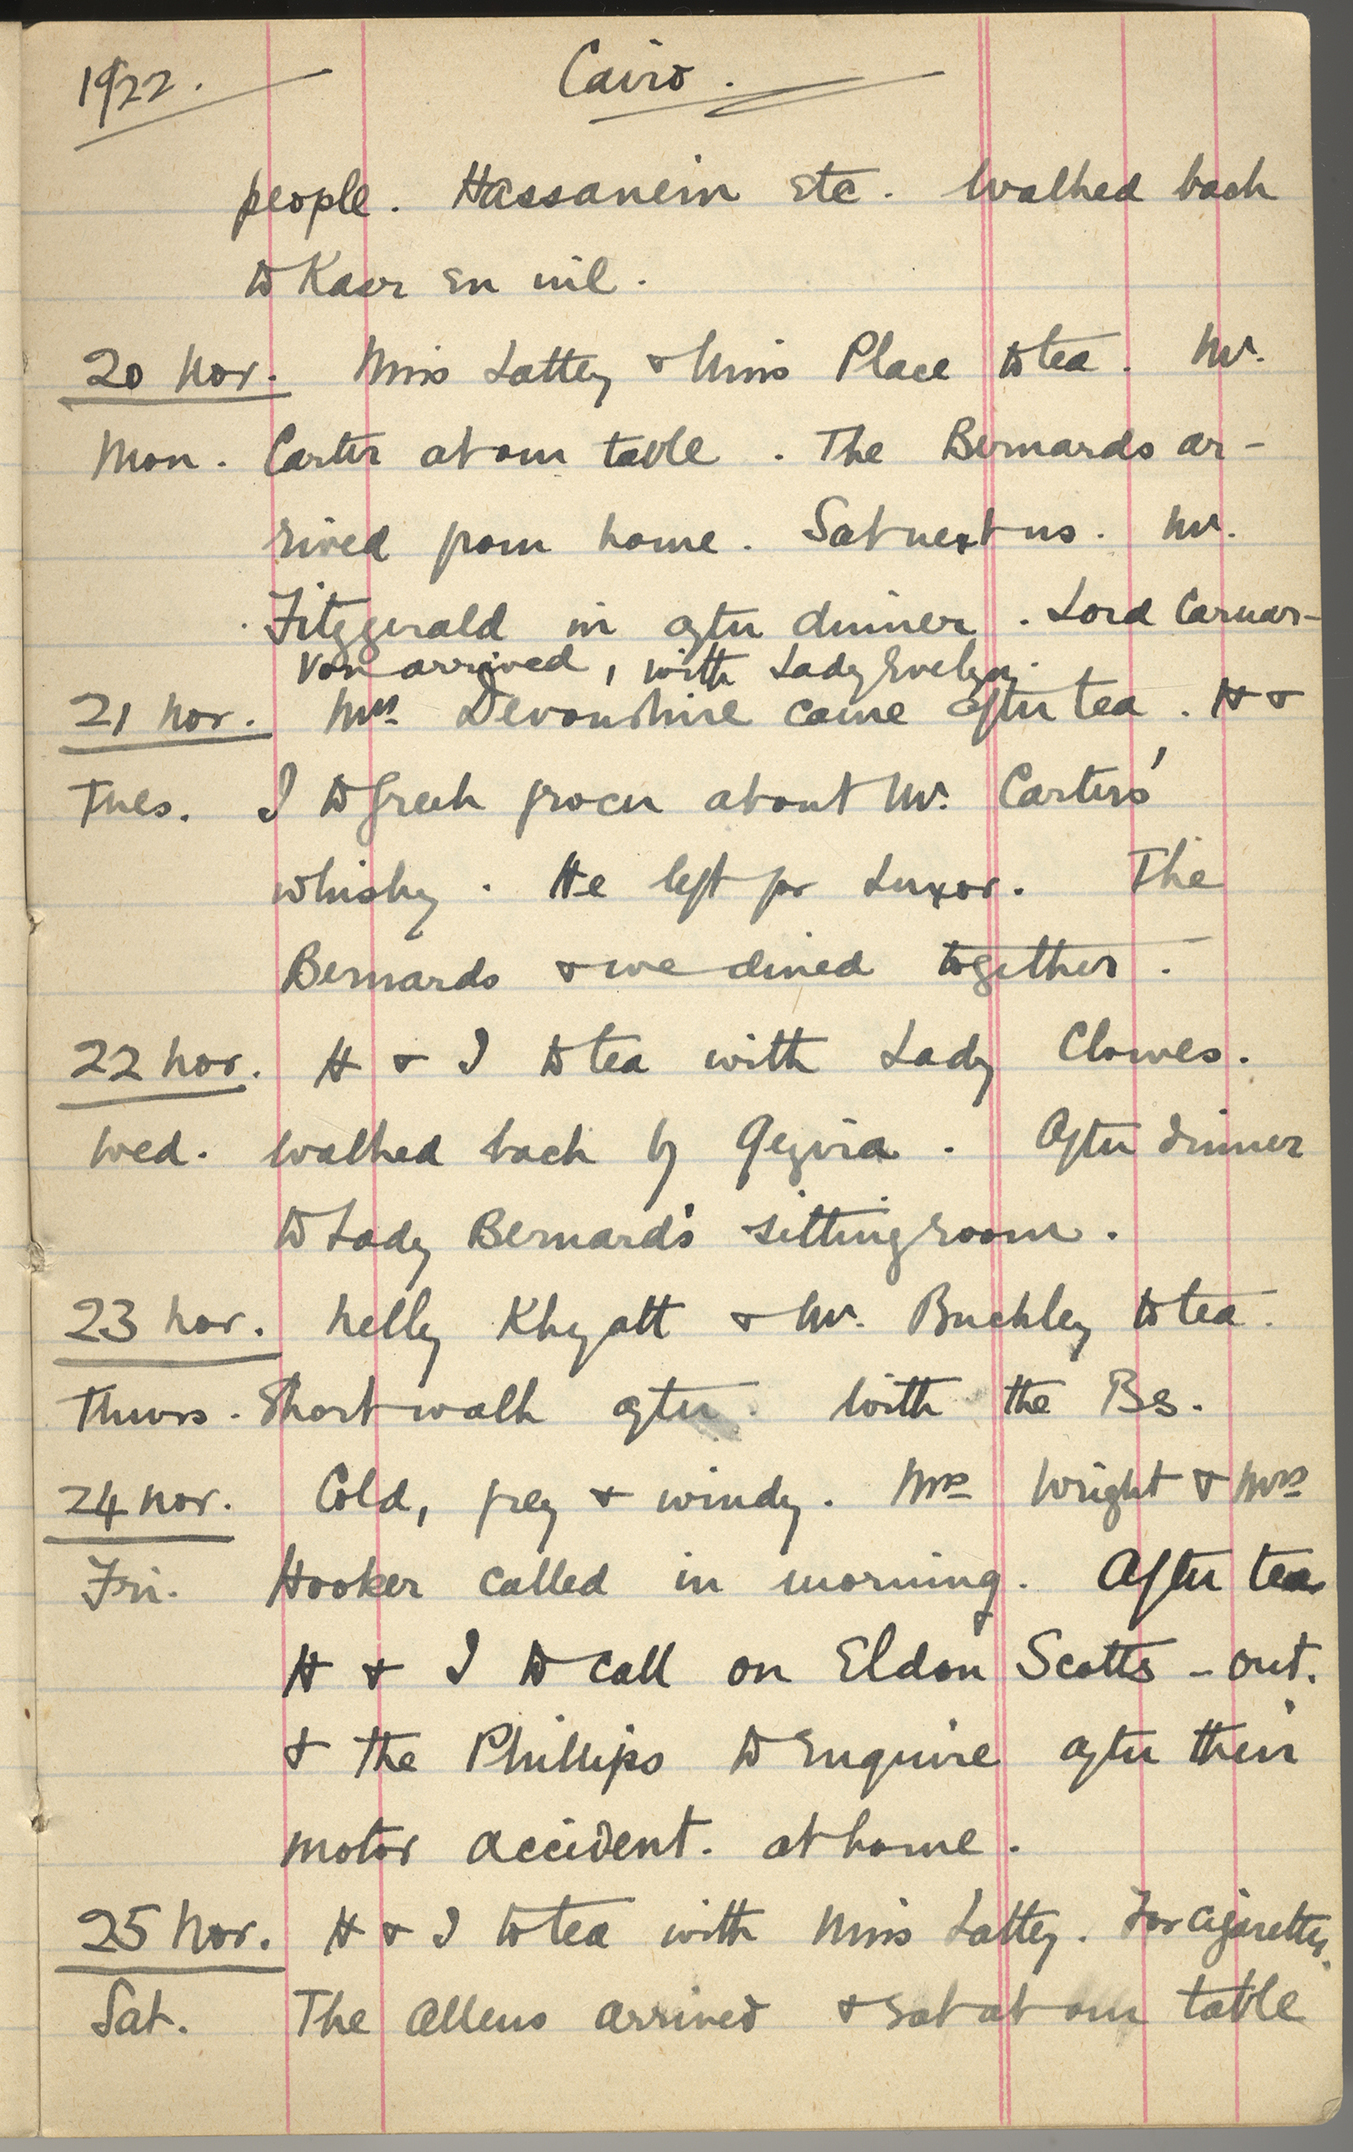 1922. Cairo.
people. Hassanein etc. Walked back
to Kasr en nil.
20 Nov. Miss Lattey & Miss Place to tea. Mr.
Mon. Carter at our table. The Bernards ar-
rived from home. Sat next us. Mr.
Fitzgerald in after dinner. Lord Carnar-
von arrived, with Lady Evelyn.
21 Nov. Mrs Devonshire came after tea. H &
Tues. I to Greek grocer about Mr. Carters'
whisky. He left for Luxor. The
Bernards & we dined together.
22 Nov. H & I to tea with Lady Clowes.
Wed. Walked back by Gezira. After dinner
to Lady Bernard's sittingroom.
23 Nov. Nelly Khyatt & Mr. Buckley to tea.
Thurs. Short walk after. With the Bs.
24 Nov. Cold, grey & windy. Mrs Wright & Mrs
Fri. Hooker called in morning. After tea
H & I to call on Eldon Scotts - out.
& the Phillips to enquire after their
motor accident. at home.
25 Nov. H & I to tea with Miss Lattey. For cigarettes.
Sat. The Allens arrived & sat at our table